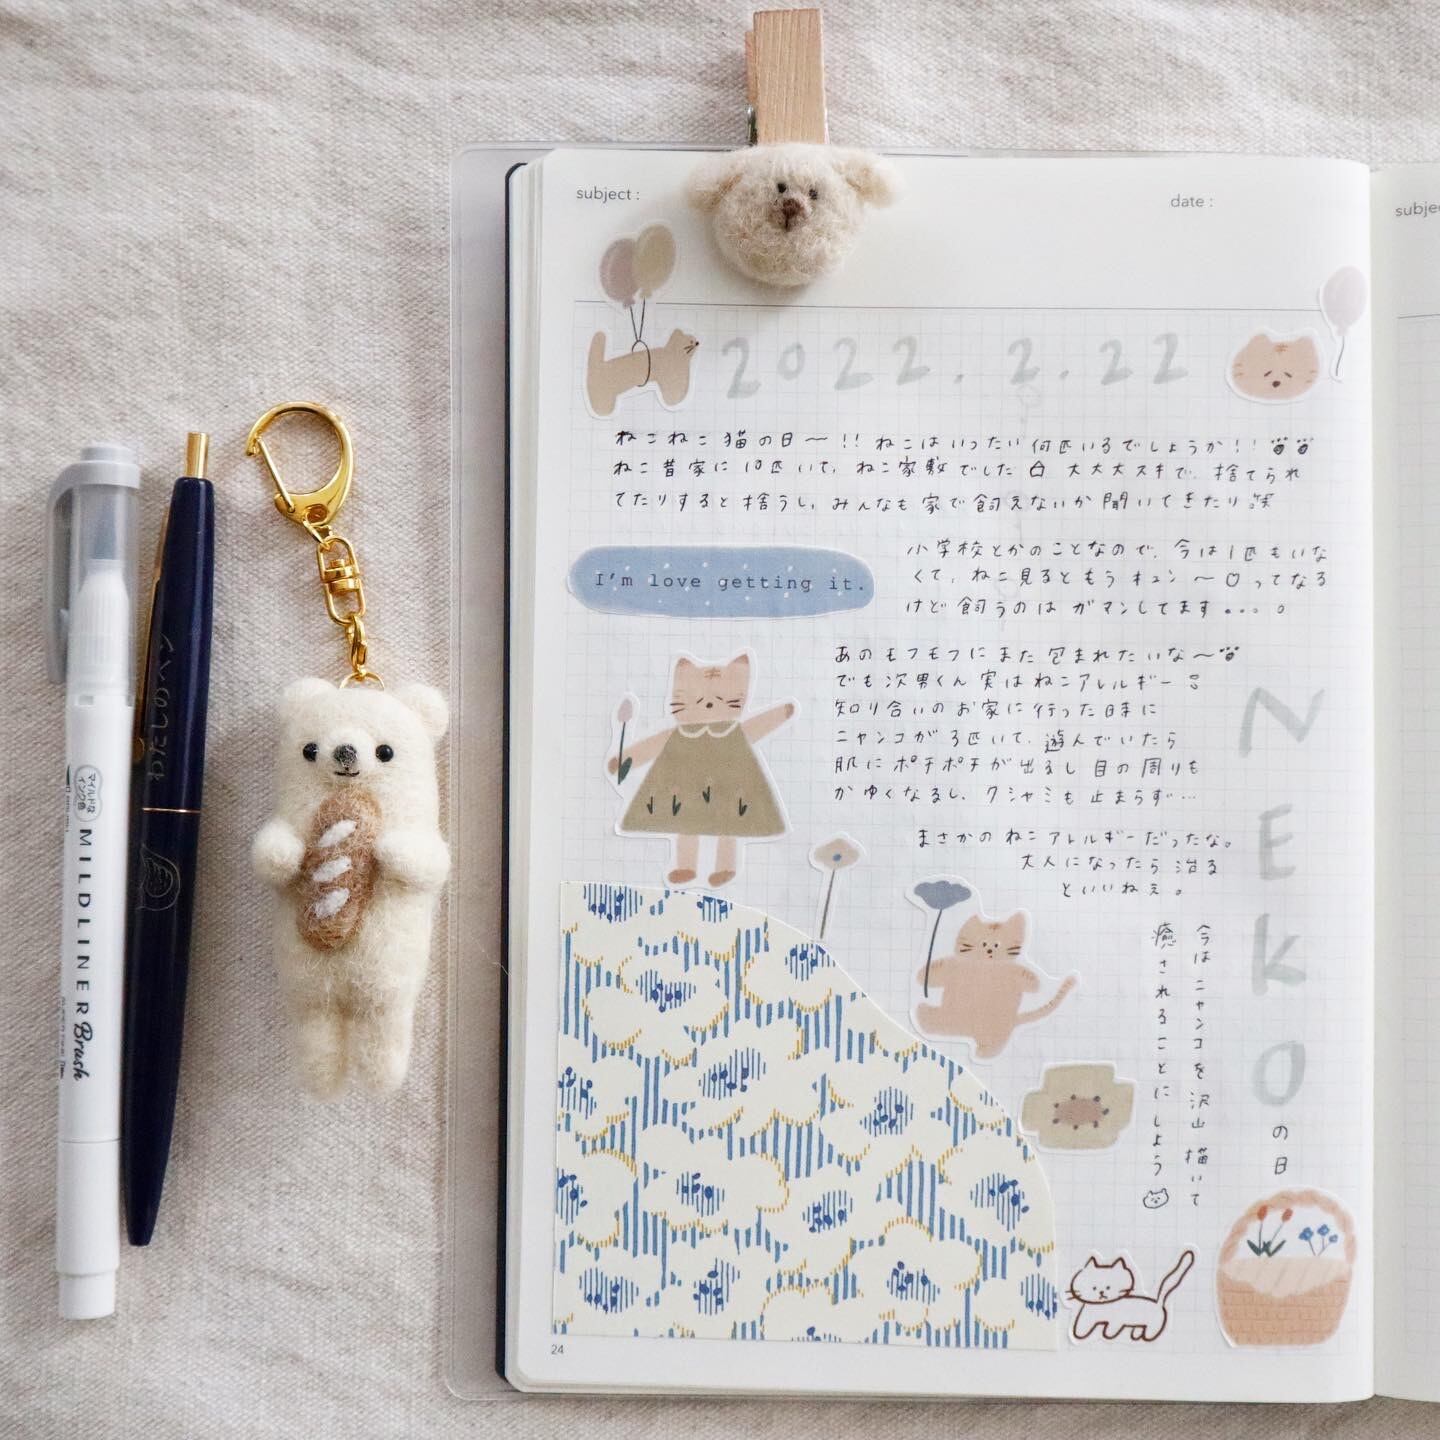 subject :
date :
subjec
2022.2.22
ねこねこ猫の日〜!! ねこはいったい何匹いるでしょうか!!
ねこ昔家に10匹いて、ねこ家敷でした 大大大スキで、捨てられ
てたりすると捨うし、みんなも家で飼えないか聞いてきたり 笑
小学校とかのことなので、今は1匹もいな
くて、ねこ見るともうキュン〜♡ってなる
けど飼うのはガマンしてます....。
I'm love getting it.
あのモフモフにまた包まれたいな〜
でも次男くん実はねこアレルギー
知り合いのお家に行った時に
ニャンコが3匹いて、遊んでいたら
肌にポチポチが出るし目の周りも
かゆくなるし、クシャミも止まらず…
まさかのねこアレルギーだったな。
大人になったら治る
といいねぇ。
今はニャンコを沢山描いて
癒されることにしよう
NEKO
の日
24
マイルドな
インク色
MILDLINER Brush
わたしのペン